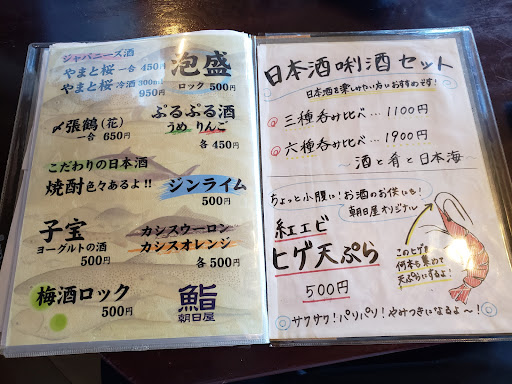 ジャパニーズ酒
やまと桜 一合 450円
やまと桜 冷酒300ml
950円
泡盛
ロック 500円
〆張鶴(花)
一合 650円
ぷるぷる酒
うめ りんご
各450円
こだわりの日本酒
焼酎色々あるよ!!
ジンライム
500円
子宝
ヨーグルトの酒
500円
カシスウーロン
カシスオレンジ
各500円
梅酒ロック
500円
鮨
朝日屋
日本酒唎酒セット
日本酒を楽しみたい方におすすめです!
◎三種呑み比べ…1100円
◎六種呑み比べ…1900円
〜酒と肴と日本海〜
ちょっと小腹に!お酒のお供にも!
朝日屋オリジナル
紅エビ
ヒゲ天ぷら
500円
このヒゲを
何本も集めて
天ぷらにするよ!
サクサク!パリパリ!やみつきになるよ〜!